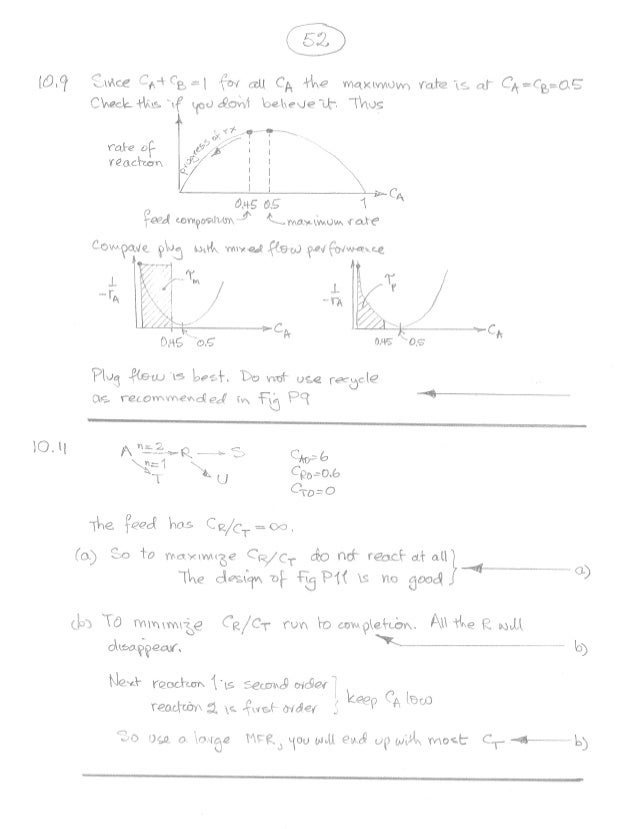 52
10.9 Since CA + CB = 1 for all CA the maximum rate is at CA = CB = 0.5
Check this if you don't believe it. Thus
rate of
reaction
progress of rx
CA
0.45 0.5 1
feed composition maximum rate
Compare plug with mixed flow performance
1/-rA τm CA
0.45 0.5
1/-rA τp CA
0.45 0.5
Plug flow is best. Do not use recycle
as recommended in Fig P9
10.11 A n=2 → R → S CA0=6
n=1 CR0=0.6
T U CT0=0
The feed has CR/CT = ∞.
(a) So to maximize CR/CT do not react at all
The design of fig P11 is no good a)
(b) To minimize CR/CT run to completion. All the R will
disappear. b)
Next reaction 1 is second order
reaction 2 is first order } keep CA low
So use a large MFR, you will end up with most CT b)